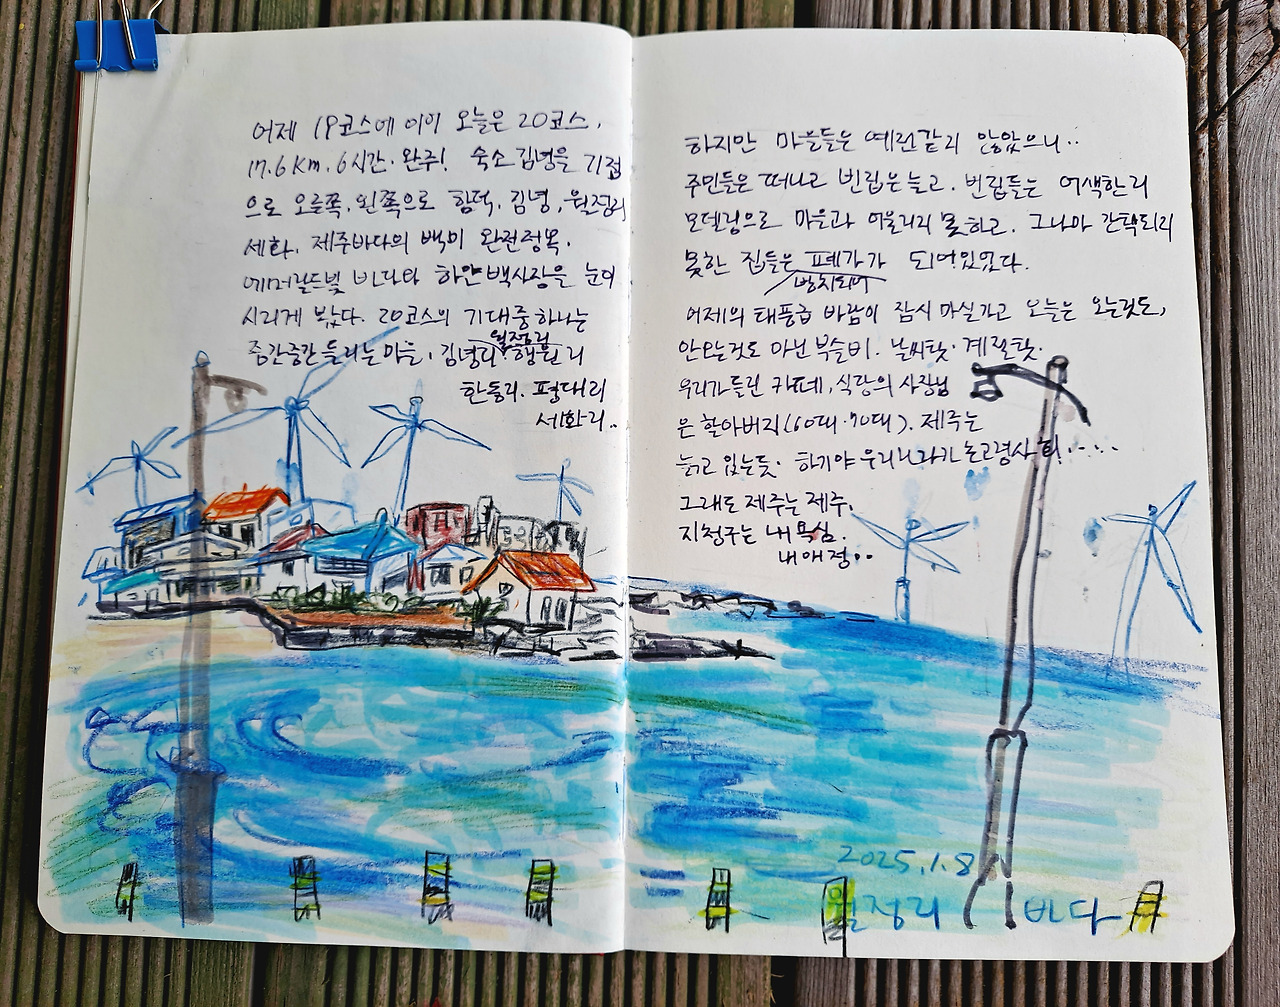 어제 19코스에 이어 오늘은 20코스.
17.6Km. 6시간. 완주! 숙소 김녕을 기점
으로 오른쪽. 왼쪽으로 함덕. 김녕, 월정리
세화. 제주바다의 백미 완전정복.
에머랄드빛 바다와 하얀 백사장을 눈이
시리게 봤다. 20코스의 기대중 하나는
중간중간 들리는 마을. 김녕리 월정리 행원리
한동리. 평대리
세화리..
하지만 마을들은 예전같지 않았으니..
주민들은 떠나고 빈집은 늘고. 번집들은 어색한 리
모델링으로 마을과 어울리지 못하고. 그나마 간택되지
못한 집들은 방치되어 폐가가 되어있었다.
어제의 태풍급 바람이 잠시 마실가고 오늘은 오는것도,
안오는것도 아닌 부슬비. 날씨탓. 계절탓.
우리가 들린 카페, 식당의 사장님
은 할아버지(60대·70대). 제주는
늙고 있는듯. 하기야 우리나라가 초고령사회.....
그래도 제주는 제주.
지청구는 내 욕심.
내 애정..
2025.1.8
월정리 바다